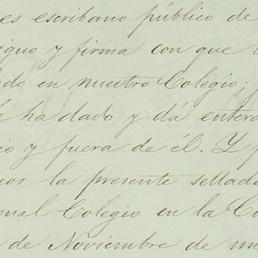 es escribano público de
igno y firma con que
do en nuestro Colegio;
ha dado y dá entera
io y fuera de él. Y
la presente sellada
Colegio en la
de Noviembre de